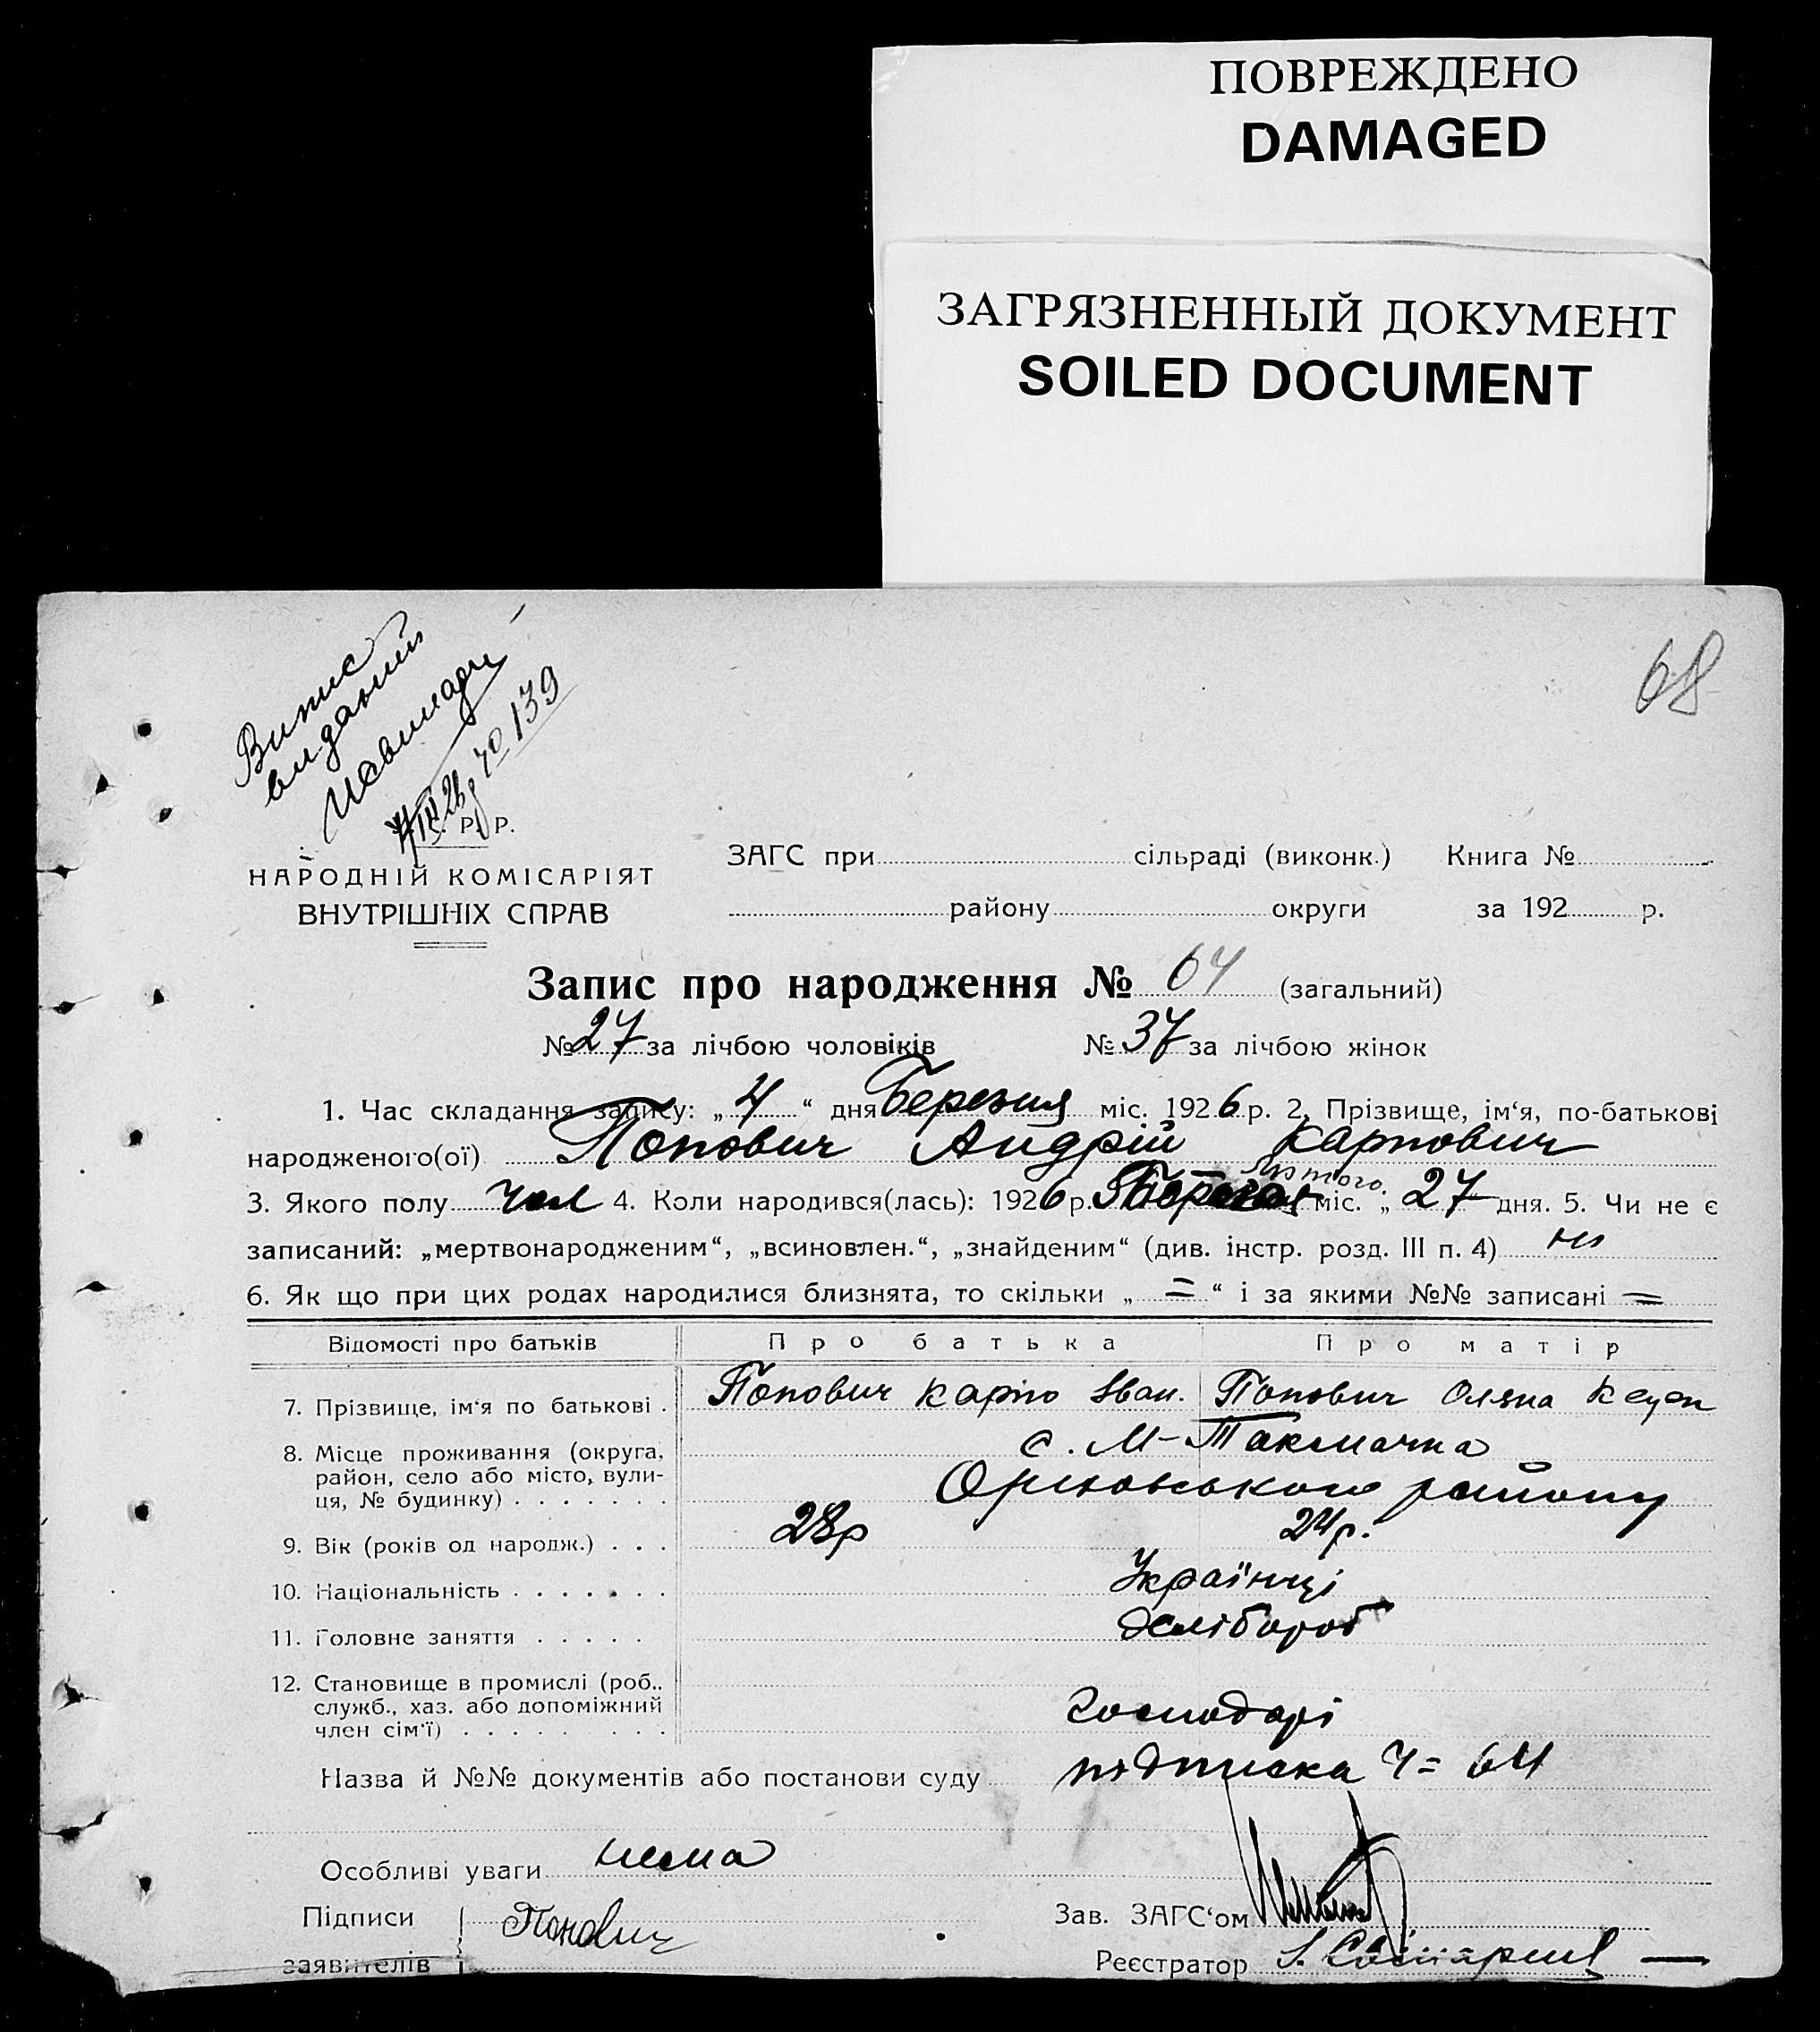 ПОВРЕЖДЕНО
DAMAGED
ЗАГРЯЗНЕННЫЙ ДОКУМЕНТ
SOILED DOCUMENT
68
Випис
виданий
139
Р. Р.
НАРОДНІЙ КОМІСАРІЯТ
ВНУТРІШНІХ СПРАВ
ЗАГС при сільраді (виконк.) Книга №
району округи за 192 р.
Запис про народження № 64 (загальний)
№ 27 за лічбою чоловіків № 37 за лічбою жінок
1. Час складання запису: „ 4 “ дня Березня міс. 1926 р. 2. Прізвище, ім‘я, по-батькові
народженого(ої) Попович Андрій Карпович
3. Якого полу чол 4. Коли народився(лась): 1926 р. Березня Лютого міс. „ 27 дня. 5. Чи не є
записаний: „мертвонародженим“, „всиновлен.“, „знайденим“ (див. інстр. розд. III п. 4) ні
6. Як що при цих родах народилися близнята, то скільки „ = “ і за якими №№ записані =
Відомості про батьків Про батька Про матір
7. Прізвище, ім‘я по батькові . Попович Карпо Іван. Попович Оляна
8. Місце проживання (округа, с. М-Токмачка
район, село або місто, вули-
ця, № будинку) . . . . . . . Оріховського району
9. Вік (років од народж.) . . . 28р 24р.
10. Національність . . . . . . . Українці
11. Головне заняття . . . . . Хлібороб
12. Становище в промислі (роб.,
служб., хаз. або допоміжний
член сім‘ї) . . . . . . . . Господарі
Назва й №№ документів або постанови суду підписка Ч= 64
Особливі уваги нема
Підписи Попович Зав. ЗАГС‘ом
заявителів Реєстратор